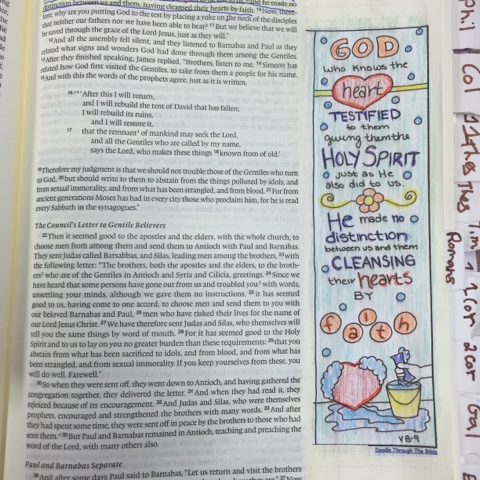 distinction between us and them, having cleansed their hearts by faith. Now, there-
fore, why are you putting God to the test by placing a yoke on the neck of the disciples
that neither our fathers nor we have been able to bear? But we believe that we will
be saved through the grace of the Lord Jesus, just as they will."
And all the assembly fell silent, and they listened to Barnabas and Paul as they
related what signs and wonders God had done through them among the Gentiles.
After they finished speaking, James replied, "Brothers, listen to me. Simeon has
related how God first visited the Gentiles, to take from them a people for his name.
And with this the words of the prophets agree, just as it is written,
"'After this I will return,
and I will rebuild the tent of David that has fallen;
I will rebuild its ruins,
and I will restore it,
17 that the remnant of mankind may seek the Lord,
and all the Gentiles who are called by my name,
says the Lord, who makes these things known from of old.'
Therefore my judgment is that we should not trouble those of the Gentiles who turn
to God, but should write to them to abstain from the things polluted by idols, and
from sexual immorality, and from what has been strangled, and from blood. For from
ancient generations Moses has had in every city those who proclaim him, for he is read
every Sabbath in the synagogues."
The Council's Letter to Gentile Believers
Then it seemed good to the apostles and the elders, with the whole church, to
choose men from among them and send them to Antioch with Paul and Barnabas.
They sent Judas called Barsabbas, and Silas, leading men among the brothers, with
the following letter: "The brothers, both the apostles and the elders, to the broth-
ers who are of the Gentiles in Antioch and Syria and Cilicia, greetings. Since we
have heard that some persons have gone out from us and troubled you with words,
unsettling your minds, although we gave them no instructions, it has seemed
good to us, having come to one accord, to choose men and send them to you with
our beloved Barnabas and Paul, men who have risked their lives for the name of
our Lord Jesus Christ. We have therefore sent Judas and Silas, who themselves will
tell you the same things by word of mouth. For it has seemed good to the Holy
Spirit and to us to lay on you no greater burden than these requirements: that you
abstain from what has been sacrificed to idols, and from blood, and from what has
been strangled, and from sexual immorality. If you keep yourselves from these, you
will do well. Farewell."
So when they were sent off, they went down to Antioch, and having gathered the
congregation together, they delivered the letter. And when they had read it, they
rejoiced because of its encouragement. And Judas and Silas, who were themselves
prophets, encouraged and strengthened the brothers with many words. And after
they had spent some time, they were sent off in peace by the brothers to those who had
sent them. But Paul and Barnabas remained in Antioch, teaching and preaching the
word of the Lord, with many others also.
Paul and Barnabas Separate
And after some days Paul said to Barnabas, "Let us return and visit the brothers
GOD
who knows the
heart
TESTIFIED
to them
giving them the
HOLY SPIRIT
just as He
also did to us.
He made no
distinction
between us and them
CLEANSING
their hearts
BY
faith
V8-9
Doodle Through The Bible
Phil
Col
1 Thes
Romans
1 Cor
2 Cor
Gal